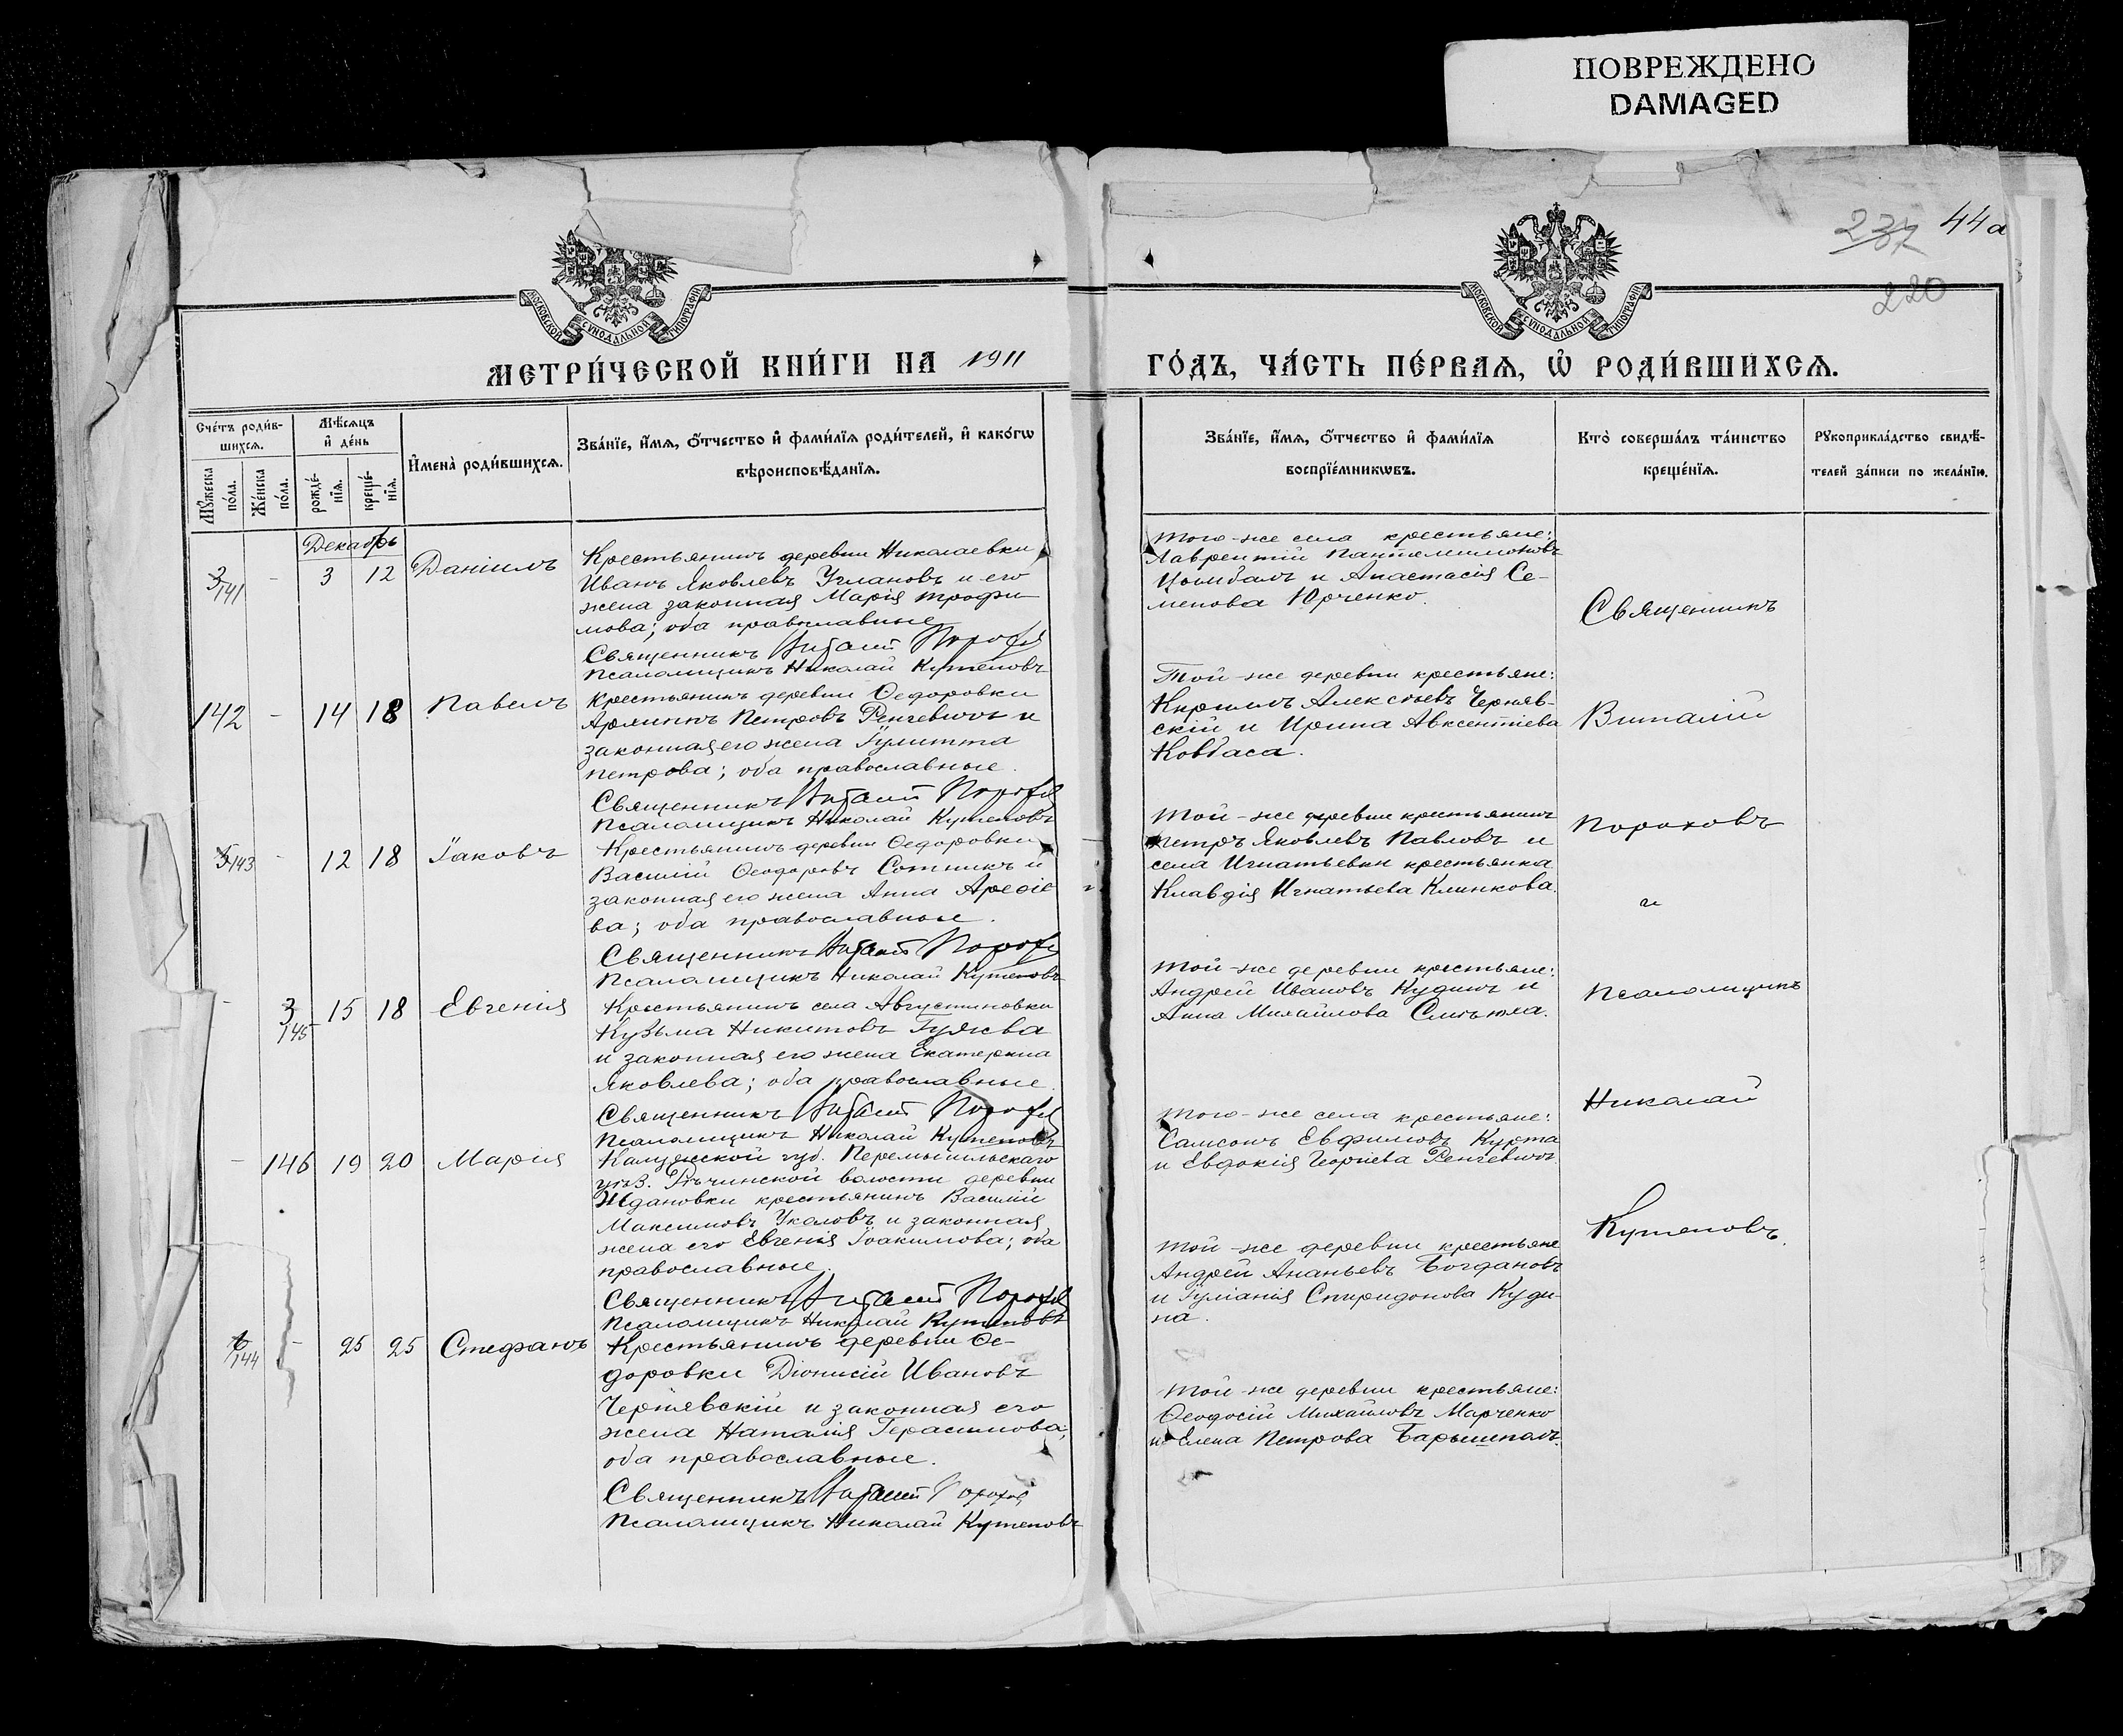 ПОВРЕЖДЕНО
DAMAGED
237 44а
220
МОСКОВСКОЙ СУНОДАЛЬНОЙ ТИПОГРАФІИ
МОСКОВСКОЙ СУНОДАЛЬНОЙ ТИПОГРАФІИ
МЕТРИ́ЧЕСКОЙ КНИ́ГИ НА 1911
ГО́ДЪ, ЧА́СТЬ ПЕ́РВАѦ, Ѽ РОДИ́ВШИХСѦ.
Сче́тъ роди́в-
шихсѧ.
Мꙋ́жеска
по́ла.
Же́нска
по́ла.
Мѣ́сѧцъ
и҆ де́нь
рожде́-
нїѧ.
креще́-
нїѧ.
И҆мена̀ роди́вшихсѧ.
Зва́нїе, и҆́мѧ, ѻ҆́тчество и҆ фами́лїѧ роди́телей, и҆ како́гѡ
вѣроисповѣ́данїѧ.
Зва́нїе, и҆́мѧ, ѻ҆́тчество и҆ фами́лїѧ
воспрїе́мникѡвъ.
Кто̀ соверша́лъ та́инство
креще́нїѧ.
Рꙋкоприкла́дство свидѣ́-
телей за́писи по жела́нїю.
Декабрь
141 - 3 12 Даніилъ
Крестьянинъ деревни Николаевки
Иванъ Яковлевъ Углановъ и его
жена законная Марія Трофи
мова; оба православные
Священникъ Виталий Порохов
Псаломщикъ Николай Кутеповъ
того-же села крестьяне:
Лаврентій Пантелимоновъ
Цымбалъ и Анастасія Се-
менова Юрченко.
142 - 14 18 Павелъ
Крестьянинъ деревни Ѳедоровки
Петровъ Ренгевичъ и
законная его жена Іулитта
Петрова; оба православные.
Священникъ Виталий Порохов
Псаломщикъ Николай Кутеповъ
Той-же деревни крестьяне:
Кириллъ Алексѣевъ Черняв-
скій и Ирина Авксентіева
Ковбаса.
143 - 12 18 Іаковъ
Крестьянинъ деревни Ѳедоровки
Василій Ѳеодоровъ Сотникъ и
законная его жена Анна Арефіе
ва; оба православные.
Священникъ Виталий Порохов
Псаломщикъ Николай Кутеповъ
Той-же деревни крестьянинъ
Петръ Яковлевъ Павловъ и
села Игнатьевки крестьянка
Клавдія Игнатьева Клинкова.
- 3 145 15 18 Евгенія
Крестьянинъ села Августиновки
Кузьма Никитовъ
и законная его жена Екатерина
Яковлева; оба православные.
Священникъ Виталий Порохов
Псаломщикъ Николай Кутеповъ
Той-же деревни крестьяне:
Андрей Ивановъ Кудинъ и
Анна Михайлова
- 146 19 20 Марія
Калужской губ. Перемышльскаго
уѣз. волости деревни
Ждановки крестьянинъ Василій
Максимовъ Укаловъ и законная
жена его Евгенія Іоакимова; оба
православные.
Священникъ Виталий Порохов
Псаломщикъ Николай Кутеповъ
того-же села крестьяне:
Самсонъ Евфимовъ Курта
и Евдокія Георгіева Ренгевичъ.
Той-же деревни крестьяне
Андрей Ананьевъ Богдановъ
и Іуліанія Спиридонова Куди-
на.
144 - 25 25 Стефанъ
Крестьянинъ деревни Ѳе-
доровки Діонисій Ивановъ
Чернявскій и законная его
жена Наталія Герасимова;
оба православные.
Священникъ Виталий Порохов
Псаломщикъ Николай Кутеповъ
Той-же деревни крестьяне:
Ѳеодосій Михайловъ Марченко
и Елена Петрова Барышполъ.
Священникъ
Виталій
Пороховъ
и
Псаломщикъ
Николай
Кутеповъ.